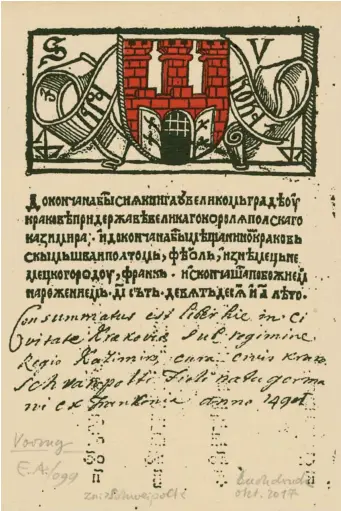 S V
Докончана бысиѧ книга ꙋ великомь градѣ ѹ
краковѣ при державѣ великаго королѧ полскаго
казимира · и докончана бы мѣщанином краковь
скымь шваиполтомь, фѣоль, из нѣмець не
мецкого родоу, франкъ · и скончашѧ по божием
нарожениемь · д҃і сътъ девѧтьдесѧ и а҃ лѣто ·
Consummatus est liber hic in ci
vitate Krakovia sub regimine
Regis Kazimiri cura civis krak
Schvanpolti Fiol natu germa
ni ex Franconia anno 1491
E.A./099
Zn: Schweipolta
Okt. 2017